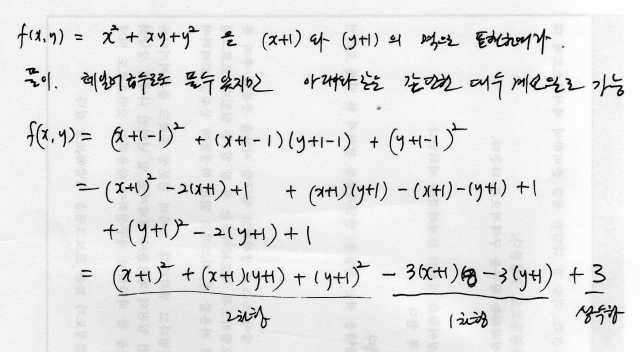 f(x,y) = x² + xy + y² 을 (x+1) 와 (y+1) 의 멱으로 표현하여라.
풀이. 테일러 급수로도 풀수 있지만 아래와 같은 간단한 대수 계산으로 가능
f(x,y) = (x+1-1)² + (x+1-1)(y+1-1) + (y+1-1)²
= (x+1)² - 2(x+1) + 1 + (x+1)(y+1) - (x+1) - (y+1) + 1
+ (y+1)² - 2(y+1) + 1
= (x+1)² + (x+1)(y+1) + (y+1)² - 3(x+1) - 3(y+1) + 3
2차항 1차항 상수항